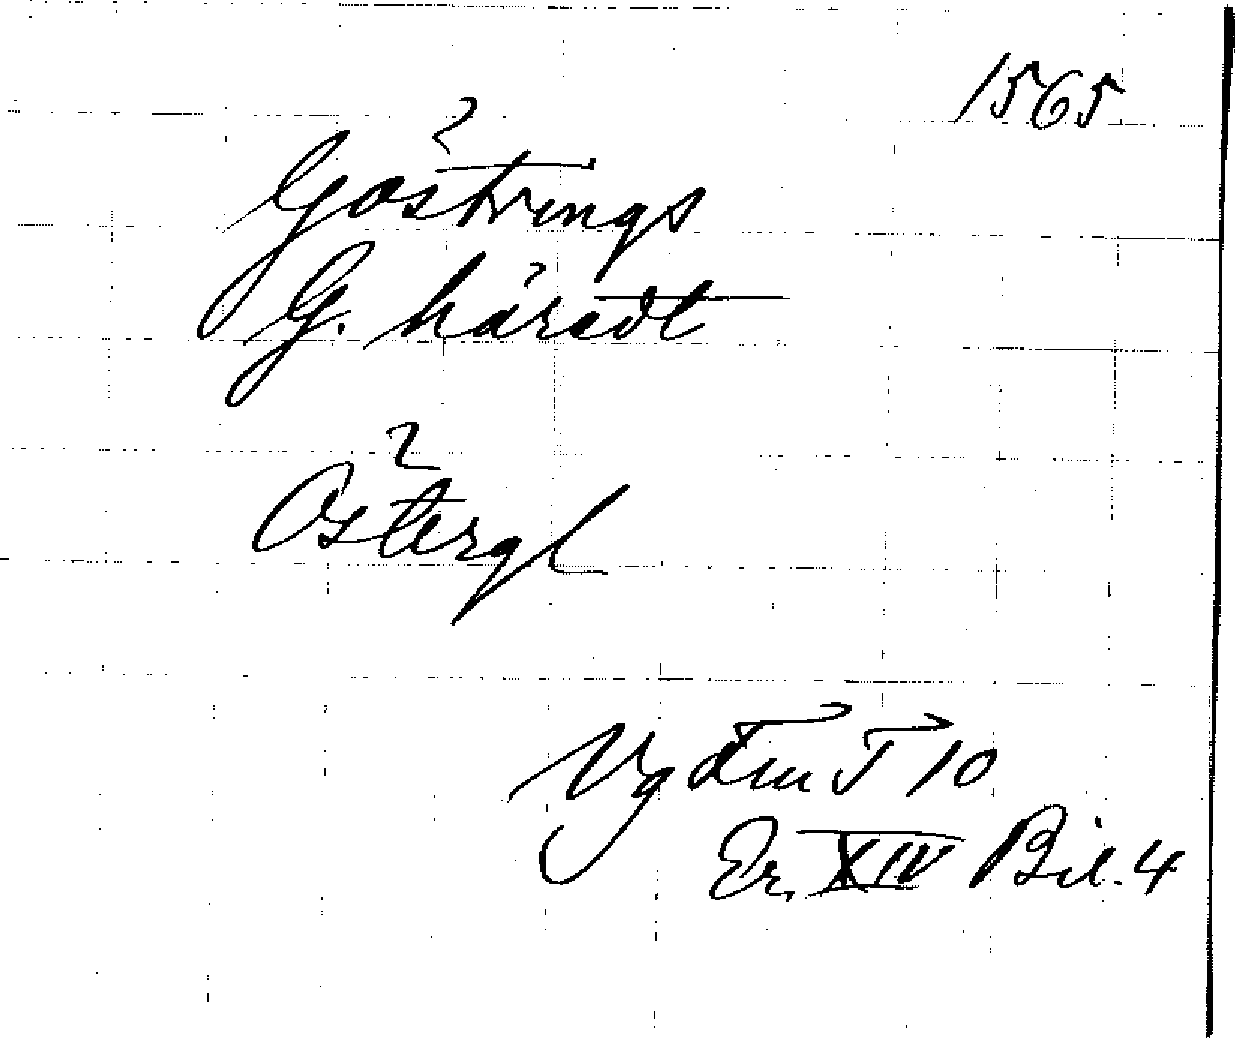 1565
Göstrings
G. häredt
Östergl
Vg dm I 10
Er. XIV Bil. 4